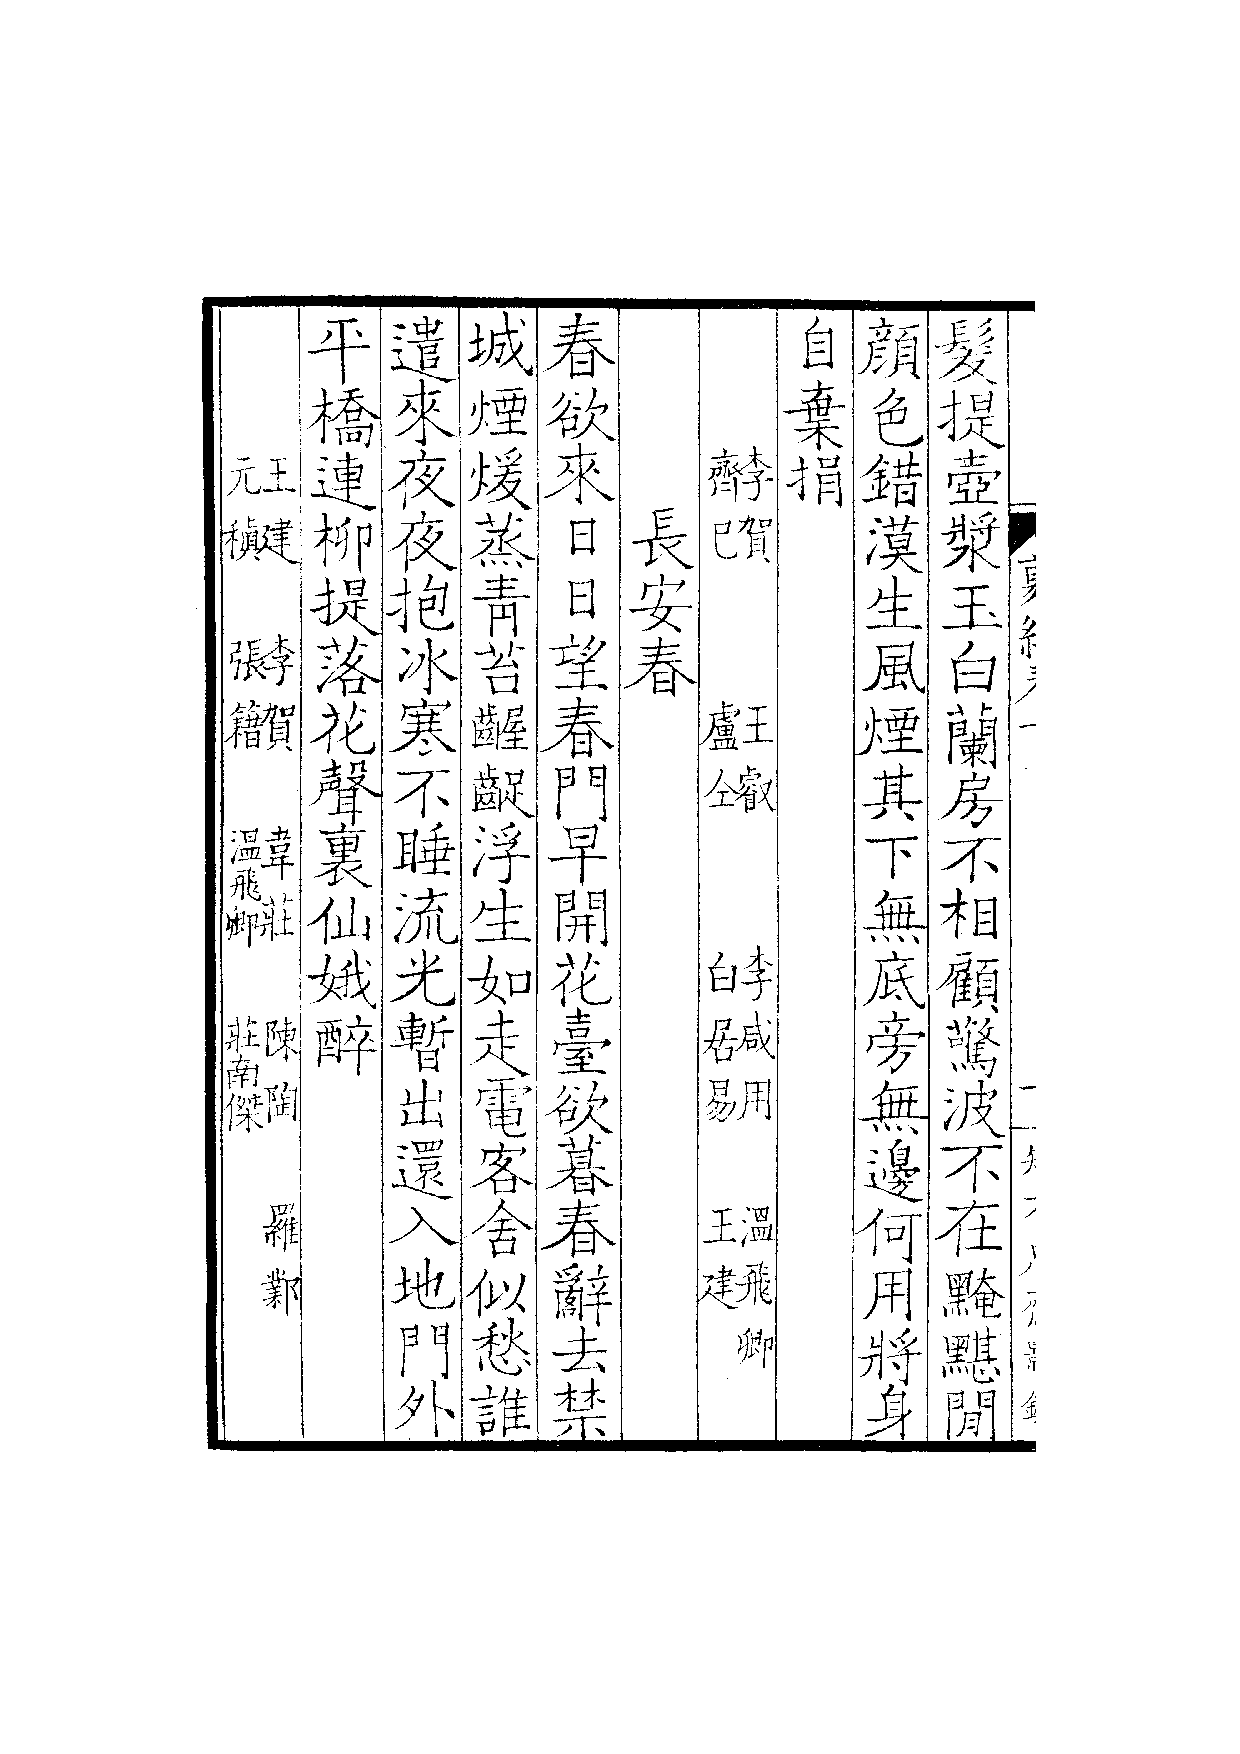 髮提壺漿玉白蘭房不相顧驚波不在黤黮閒
顏色錯漠生風煙其下無底旁無邊何用將身
自棄捐
李賀 王叡 李咸用 溫飛卿
齊巳 盧仝 白居易 王建
長安春
春欲來日日望春門早開花臺欲暮春辭去禁
城煙煖蒸青苔齷齪浮生如走電客舍似愁誰
遣來夜夜抱冰寒不睡流光暫出還入地門外
平橋連柳提落花聲裏仙娥醉
王建 李賀 韋莊 陳陶 羅鄴
元稹 張籍 溫飛卿 莊南傑